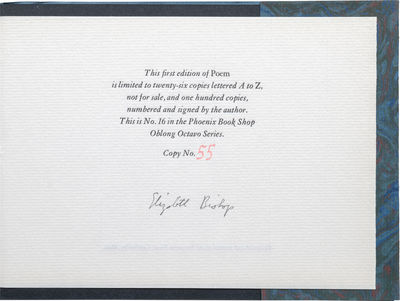 This first edition of Poem
is limited to twenty-six copies lettered A to Z,
not for sale, and one hundred copies,
numbered and signed by the author.
This is No. 16 in the Phoenix Book Shop
Oblong Octavo Series.
Copy No. 55
Elizabeth Bishop